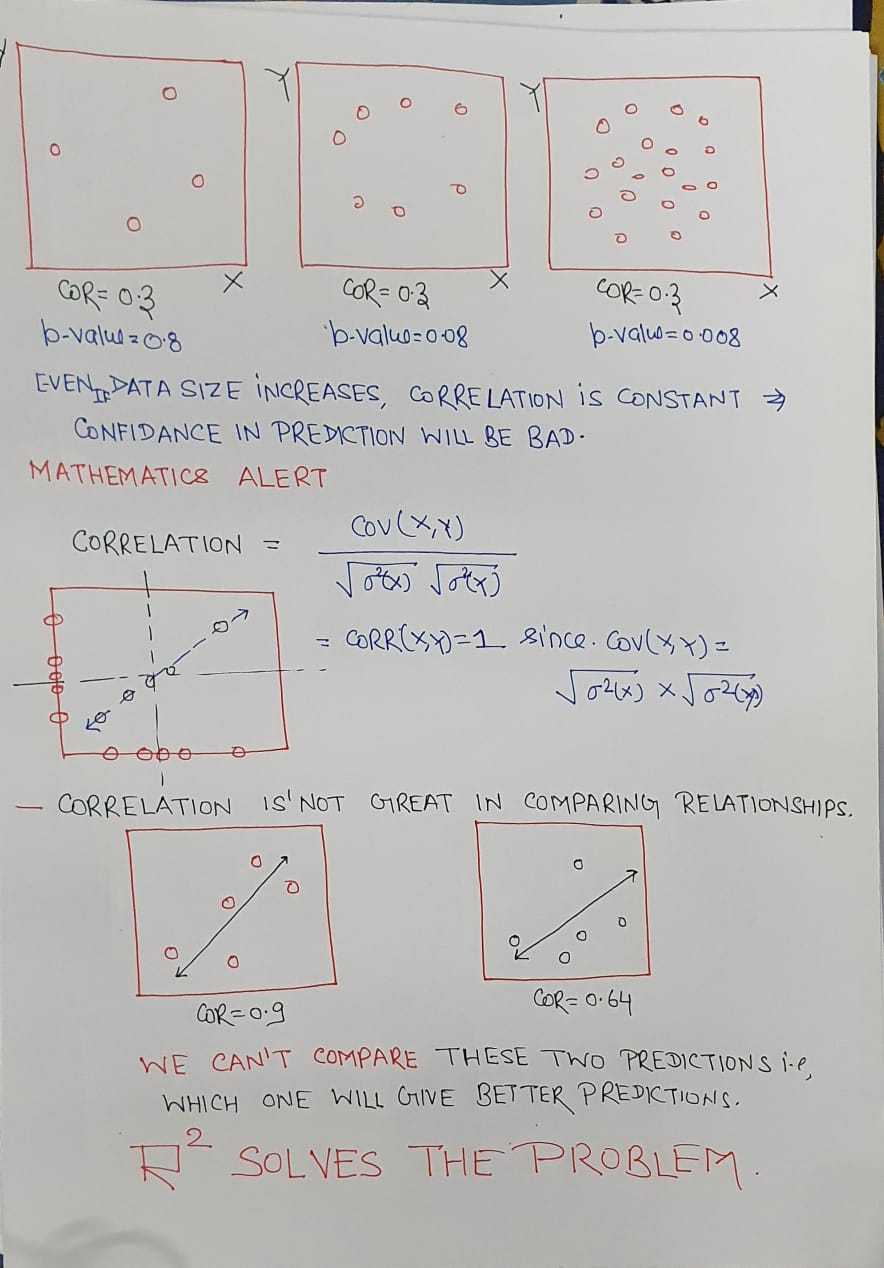 Y Y Y
COR= 0.3 X COR= 0.3 X COR= 0.3 X
p-value=0.8 p-value=0.08 p-value=0.008
EVEN IF DATA SIZE INCREASES, CORRELATION IS CONSTANT ⇒
CONFIDANCE IN PREDICTION WILL BE BAD.
MATHEMATICS ALERT
CORRELATION = Cov(X,Y) / √σ²(x) √σ²(Y)
= CORR(X,Y)=1 since. Cov(X,Y) =
√σ²(x) × √σ²(y)
— CORRELATION IS' NOT GREAT IN COMPARING RELATIONSHIPS.
COR=0.9 COR= 0.64
WE CAN'T COMPARE THESE TWO PREDICTIONS i.e,
WHICH ONE WILL GIVE BETTER PREDICTIONS.
R² SOLVES THE PROBLEM.